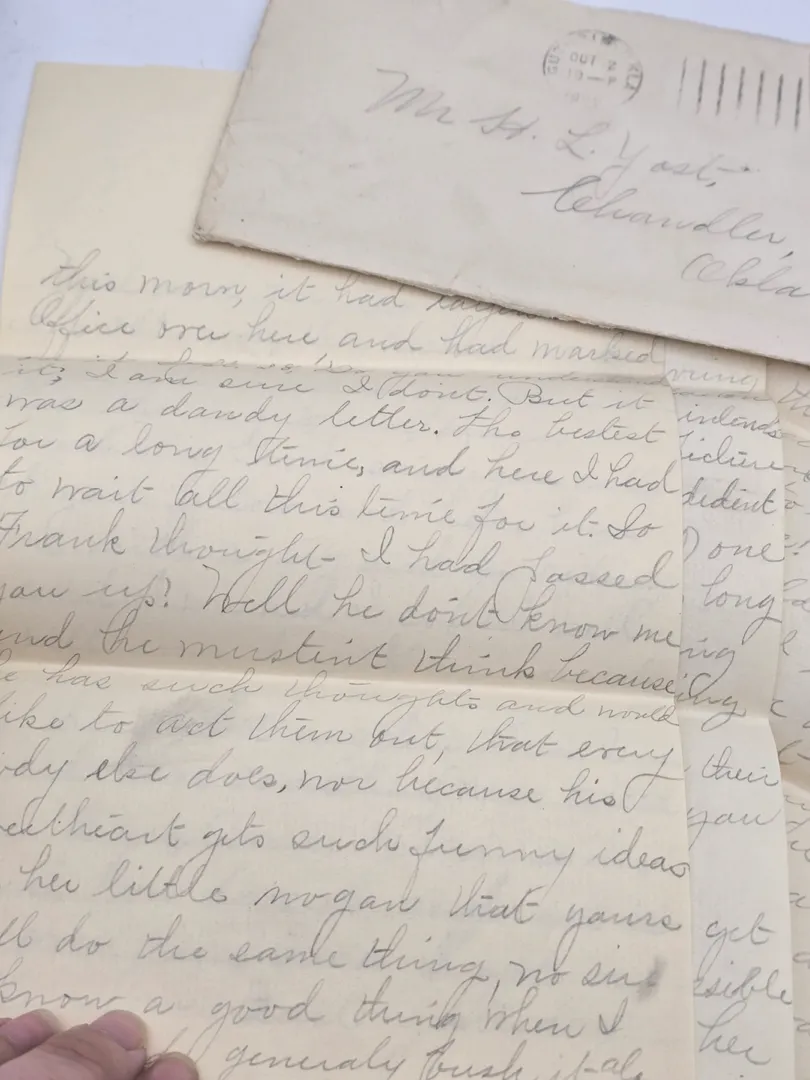 OCT 2
Mr H. L. Yost,
Chandler,
Okla
this morn, it had
Office over here and had marked
it; I am sure I dont. But it
was a dandy letter. The bestest
for a long time, and here I had
to wait all this time for it. So
Frank thought I had passed
you up? Well he don't know me
and the mustent think because
he has such thoughts and would
like to act them out, that every
ody else does, nor because his
eetheart gets such funny ideas
her little nogan that yours
ll do the same thing, no sir
know a good thing when I
generaly
ving
intends
picture
dident
one
long
ing
ing
their
you
get
sible
her